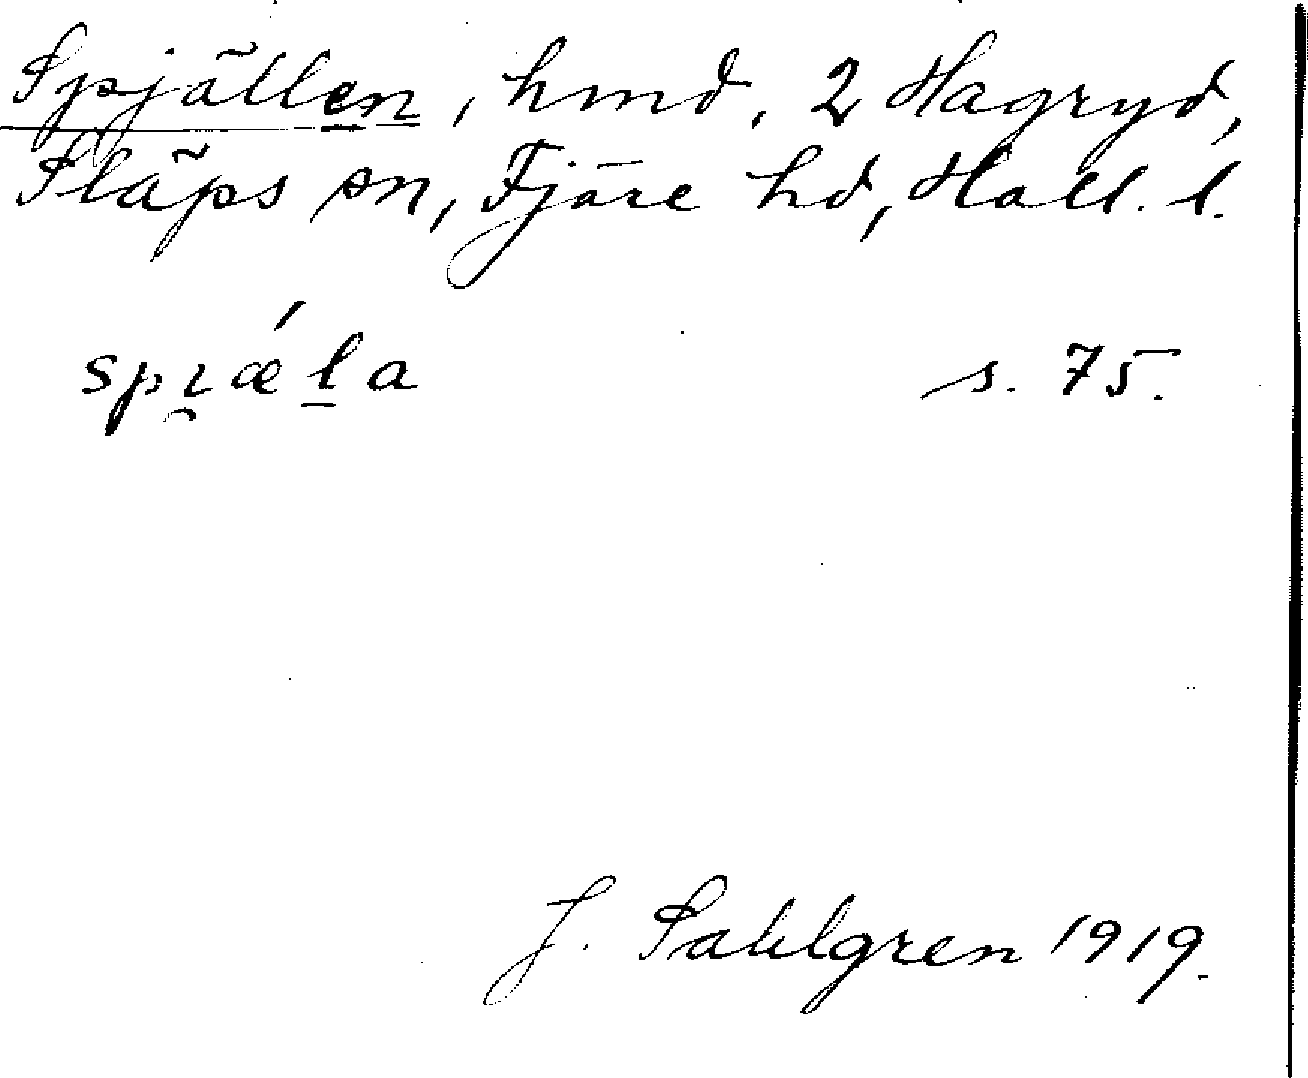 Spjällen, hmd, 2 Hagryd,
Släps sn, Fjäre hd, Hall. l.
spı̯ǽla s. 75.
J. Sahlgren 1919.